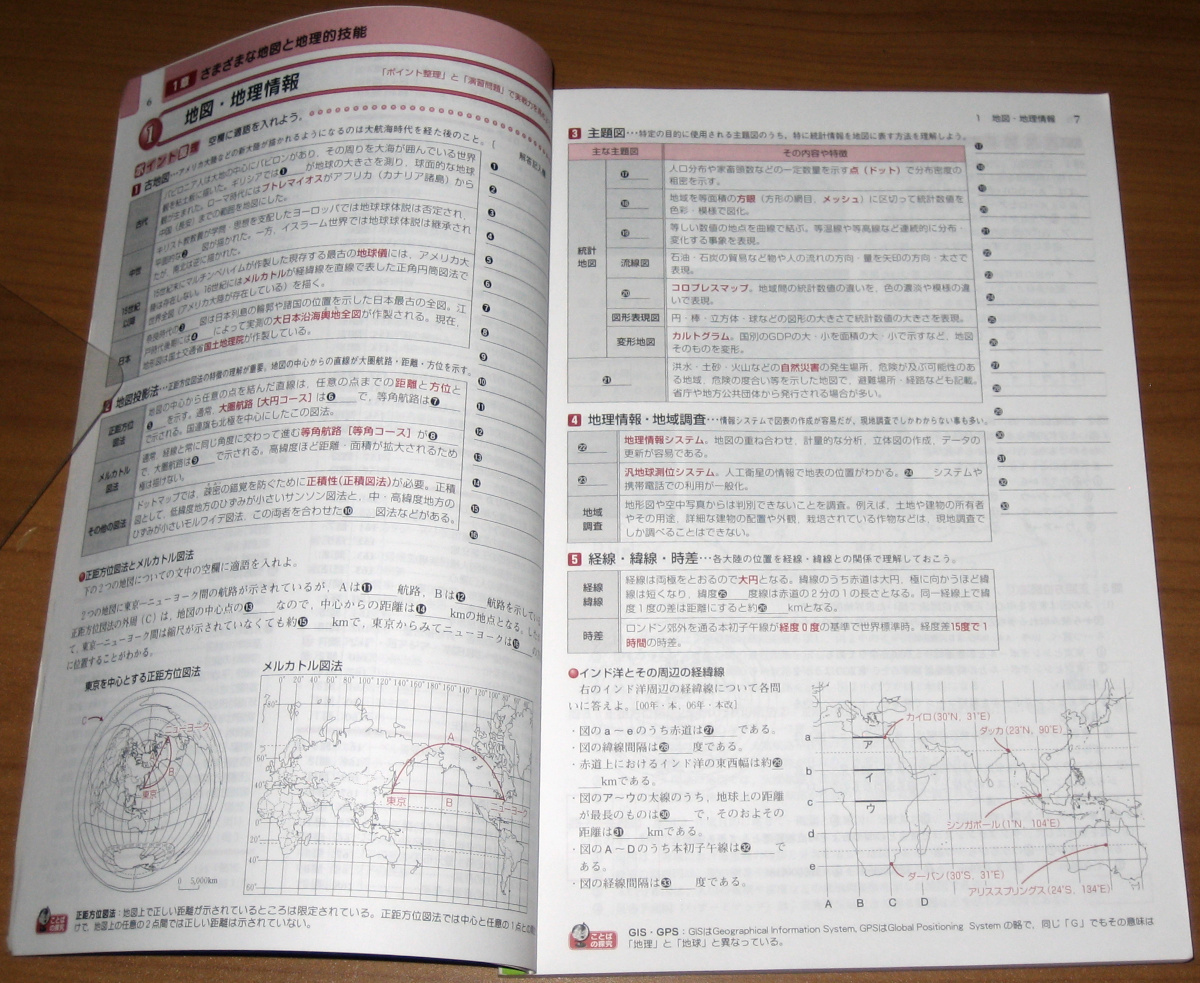 6
1章 さまざまな地図と地理的技能
1 地図・地理情報
「ポイント整理」と「演習問題」で実戦力を
ポイント整理 空欄に適語を入れよ。
1 古地図…アメリカ大陸などの新大陸が描かれるようになるのは大航海時代を経た後のこと。
解答記入欄
古代
バビロニア人は大地の中心にバビロンがあり、その周りを大海が囲んでいる世界
観を粘土板に描いた。ギリシアでは❶ が地球の大きさを測り、球面的な地球
観が生まれた。ローマ時代にはプトレマイオスがアフリカ(カナリア諸島)から
中国(長安)までの範囲を地図にした。
中世
キリスト教教義が学問・思想を支配したヨーロッパでは地球球体説は否定され、
平面的な❷ 図が描かれた。一方、イスラーム世界では地球球体説は継承され
たが、南北は逆に描かれた。
15世紀以降
15世紀末にマルチンベハイムが作製した現存する最古の地球儀には、アメリカ大
陸は存在しない。16世紀にはメルカトルが経緯線を直線で表した正角円筒図法で
世界全図(アメリカ大陸が存在している)を描く。
日本
奈良時代の❸ 図は日本列島の輪郭や諸国の位置を示した日本最古の全図。江
戸時代後期には❹ によって実測の大日本沿海輿地全図が作製される。現在、
地形図は国土交通省国土地理院が作製している。
2 地図投影法…正距方位図法の特徴の理解が重要。地図の中心からの直線が大圏航路・距離・方位を示す。
正距方位図法
地図の中心から任意の点を結んだ直線は、任意の点までの距離と方位と
❺ を示す。通常、大圏航路[大円コース]は❻ で、等角航路は❼
で示される。国連旗も北極を中心にしたこの図法。
メルカトル図法
通常、経線と常に同じ角度に交わって進む等角航路[等角コース]が❽
で、大圏航路は❾ で示される。高緯度ほど距離・面積が拡大されるため
極は描けない。
その他の図法
ドットマップでは、疎密の錯覚を防ぐために正積性(正積図法)が必要。正積
図として、低緯度地方のひずみが小さいサンソン図法と、中・高緯度地方の
ひずみが小さいモルワイデ図法、この両者を合わせた❿ 図法などがある。
正距方位図法とメルカトル図法
下の2つの地図についての文中の空欄に適語を入れよ。
2つの地図に東京―ニューヨーク間の航路が示されているが、Aは⓫ 航路、Bは⓬ 航路を示してい
正距方位図法の外周(C)は、地図の中心点の⓭ なので、中心からの距離は⓮ kmの地点となる。した
て、東京―ニューヨーク間は縮尺が示されていなくても約⓯ kmで、東京からみてニューヨークは⓰
に位置することがわかる。
東京を中心とする正距方位図法
C
ニューヨーク
A
B
東京
0 5,000km
メルカトル図法
0° 20° 40° 60° 80° 100° 120° 140° 160° 180° 160° 140° 120° 100° 80°
80°
60°
40°
20°
0°
20°
40°
60°
A
東京
B
ニューヨーク
ことばの探究
正距方位図法：地図上で正しい距離が示されているところは限定されている。正距方位図法では中心と任意の1点との間
けで、地図上の任意の2点間では正しい距離は示されていない。
❶
❷
❸
❹
❺
❻
❼
❽
❾
❿
⓫
⓬
⓭
⓮
⓯
⓰
1 地図・地理情報 7
3 主題図…特定の目的に使用される主題図のうち、特に統計情報を地図に表す方法を理解しよう。
主な主題図 その内容や特徴
統計地図
⓱ 人口分布や家畜頭数などの一定数量を示す点(ドット)で分布密度の
粗密を示す。
⓲ 地域を等面積の方眼(方形の網目、メッシュ)に区切って統計数値を
色彩・模様で図化。
⓳ 等しい数値の地点を曲線で結ぶ。等温線や等高線など連続的に分布・
変化する事象を表現。
流線図 石油・石炭の貿易など物や人の流れの方向・量を矢印の方向・太さで
表現。
⓴ コロプレスマップ。地域間の統計数値の違いを、色の濃淡や模様の違
いで表現。
図形表現図 円・棒・立方体・球などの図形の大きさで統計数値の大きさを表現。
変形地図 カルトグラム。国別のGDPの大・小を面積の大・小で示すなど、地図
そのものを変形。
㉑ 洪水・土砂・火山などの自然災害の発生場所、危険が及ぶ可能性のあ
る地域、危険の度合い等を示した地図で、避難場所・経路なども記載。
省庁や地方公共団体から発行される場合が多い。
4 地理情報・地域調査…情報システムで図表の作成が容易だが、現地調査でしかわからない事も多い。
㉒ 地理情報システム。地図の重ね合わせ、計量的な分析、立体図の作成、データの
更新が容易である。
㉓ 汎地球測位システム。人工衛星の情報で地表の位置がわかる。㉔ システムや
携帯電話での利用が一般化。
地域調査
地形図や空中写真からは判別できないことを調査。例えば、土地や建物の所有者
やその用途、詳細な建物の配置や外観、栽培されている作物などは、現地調査で
しか調べることはできない。
5 経線・緯線・時差…各大陸の位置を経線・緯線との関係で理解しておこう。
経線緯線
経線は両極をとおるので大円となる。緯線のうち赤道は大円、極に向かうほど緯
線は短くなり、緯度㉕ 度線は赤道の2分の1の長さとなる。同一経線上で緯
度1度の差は距離にすると約㉖ kmとなる。
時差
ロンドン郊外を通る本初子午線が経度0度の基準で世界標準時。経度差15度で1
時間の時差。
インド洋とその周辺の経緯線
右のインド洋周辺の経緯線について各問
いに答えよ。[00年・本、06年・本改]
・図のa〜eのうち赤道は㉗ である。
・図の緯線間隔は㉘ 度である。
・赤道上におけるインド洋の東西幅は約㉙
kmである。
・図のア〜ウの太線のうち、地球上の距離
が最長のものは㉚ で、そのおよその
距離は㉛ kmである。
・図のA〜Dのうち本初子午線は㉜ で
ある。
・図の経線間隔は㉝ 度である。
a
b
c
d
e
ア
イ
ウ
カイロ(30°N、31°E)
ダッカ(23°N、90°E)
シンガポール(1°N、104°E)
ダーバン(30°S、31°E)
アリススプリングス(24°S、134°E)
A B C D
ことばの探究
GIS・GPS：GISはGeographical Information System, GPSはGlobal Positioning Systemの略で、同じ「G」でもその意味は
「地理」と「地球」と異なっている。
⓱
⓲
⓳
⓴
㉑
㉒
㉓
㉔
㉕
㉖
㉗
㉘
㉙
㉚
㉛
㉜
㉝